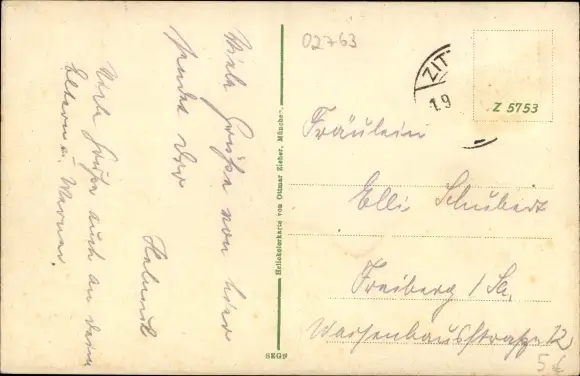 Viele Grüße von hier
sendet Dir
Helmut
Viele Grüße auch an Deine
Eltern u. Werner.
Heliokolorkarte von Ottmar Zieher, München.
SEGN
02763
ZIT
19
Z 5753
Fräulein
Elli Schubert
Freiberg / Sa.
Waisenhausstraße 12
56